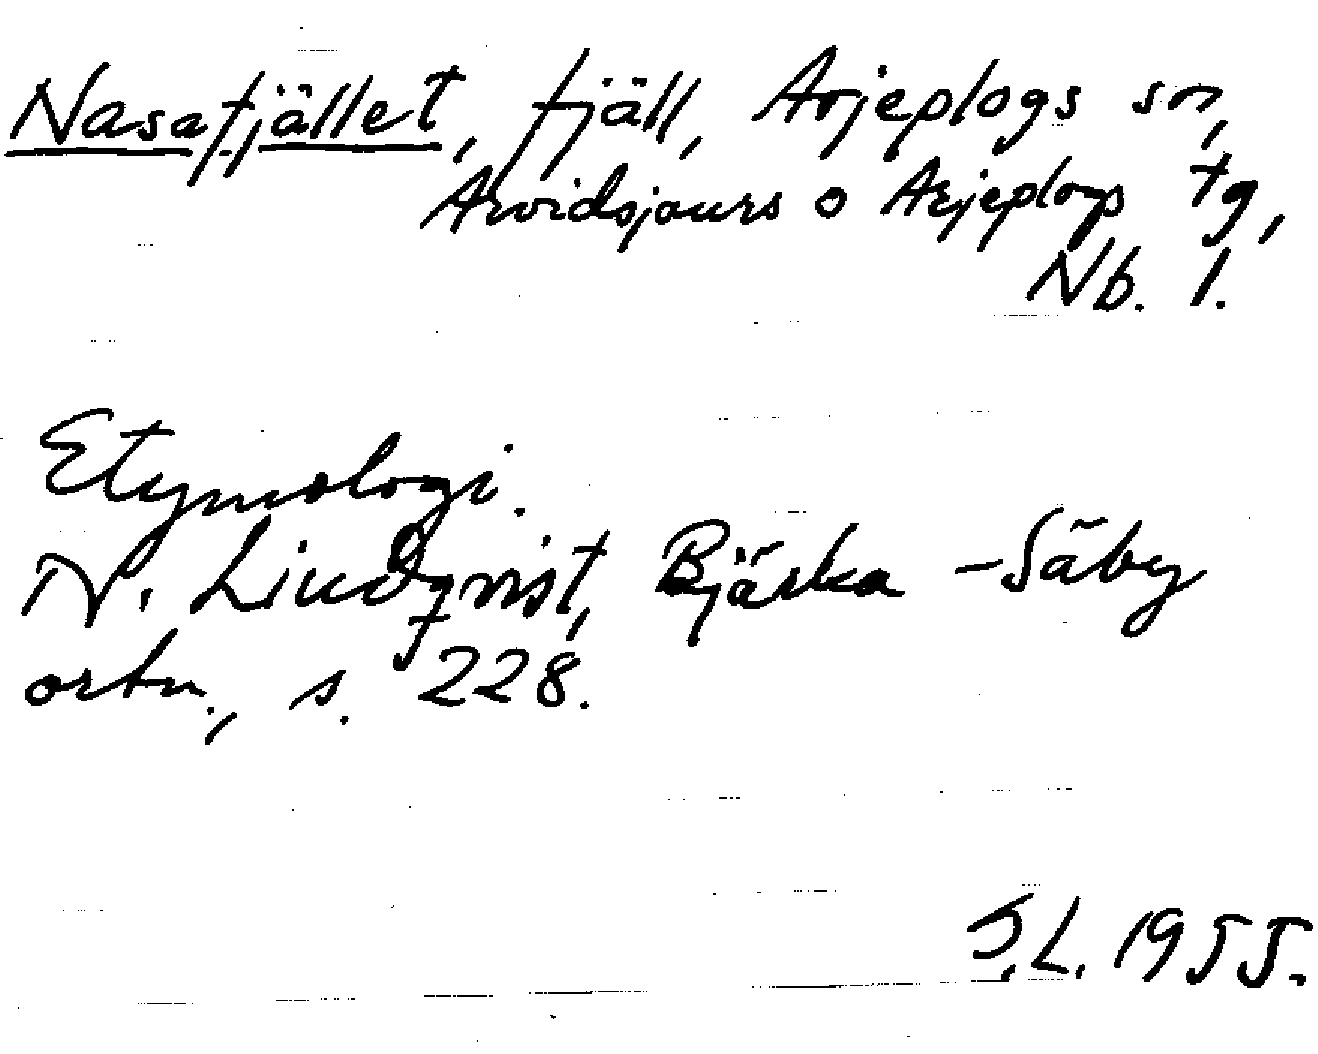 Nasafjället, fjäll, Arjeplogs sn,
Arvidsjaurs o Arjeplogs tg,
Nb. l.
Etymologi.
N. Lindqvist, Bjärka-Säby
ortn., s. 228.
S.L. 1955.